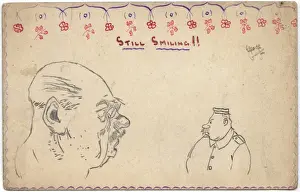 STILL SMILING!!